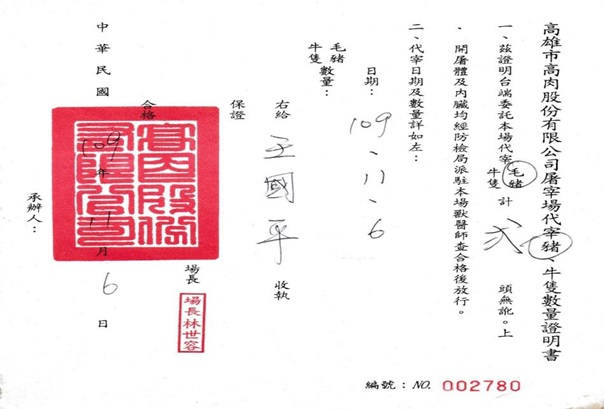 高雄市高肉股份有限公司屠宰場代宰豬、牛隻數量證明書
一、茲證明台端委託本場代宰毛豬牛隻計 貳 頭無訛。上
開屠體及內臟均經防檢局派駐本場獸醫師查合格後放行。
二、代宰日期及數量詳如左：
日期：109、11、6
毛豬
牛隻數量：
右給 王國平 收執
保證
合格
場長
場長林世容
高肉股份有限公司
承辦人：
中華民國 109 年 11 月 6 日
編號：NO. 002780